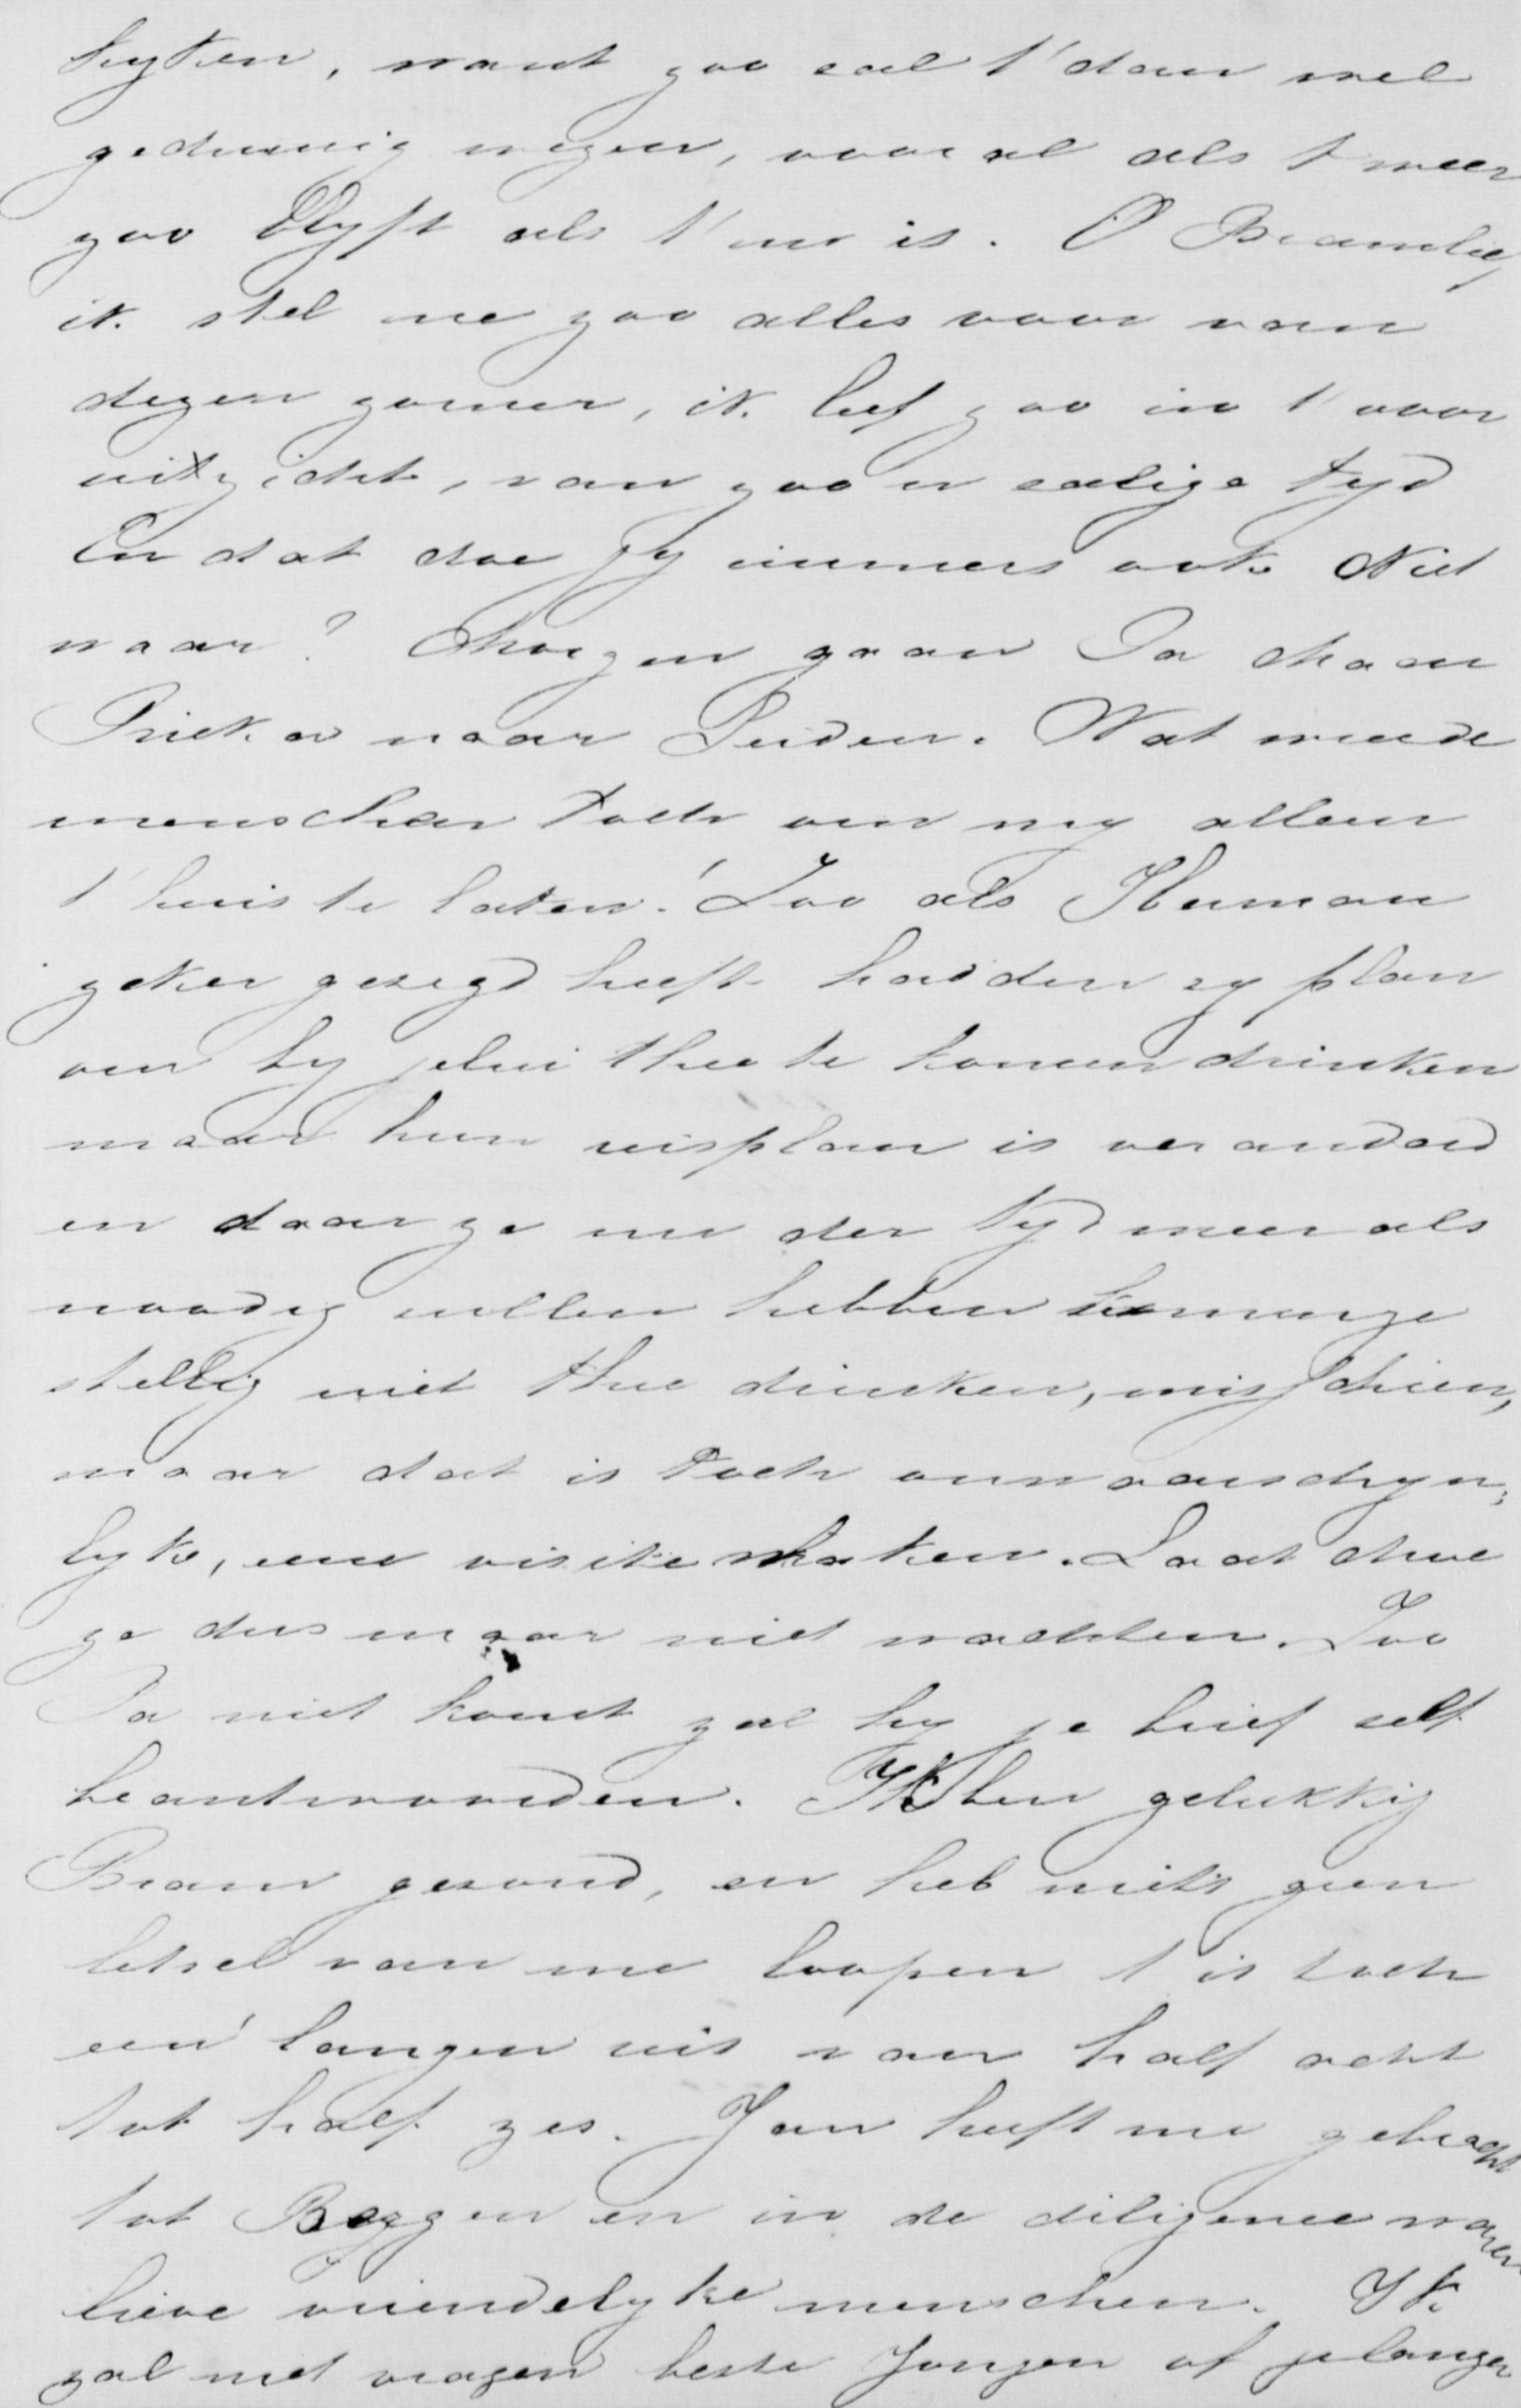 kyken, want zoo zal t' dan wel
gedurig wezen, vooral als t weer
zoo blyft als t' nu is. O Bramlief,
ik stel me zoo alles voor van
dezen zomer, ik leef zoo in t' voor
uitzicht, van zoo'n zalige tyd
En dat doe jy immers ook. Niet
waar? Morgen gaan Pa Mama
naar Leiden. Wat wreede
menschen toch om my alleen
t huis te laten! Zoo als Herman
zeker gezegd heeft hadden zy plan
om by jelui thee te komen drinken
maar hun reisplan is veranderd
en daar ze nu den tyd meer als
noodig zullen hebben ze
stellig niet thee drinken, misschien,
maar dat is toch onwaarschyn;
lyk, een visite maken. Laat Mevr
ze dus maar niet wachten. Zoo
Pa niet komt zal hy je brief zelf
beantwoorden. Ik ben gelukkig
Bram gezond, en heb niets geen
letsel van me loopen t is toch
een' langen reis van half acht
tot half zes. Jan heeft me gebracht
tot Bergen en in de diligence waren
lieve vriendelyke menschen. Ik
zal niet vragen beste Jongen of je langer